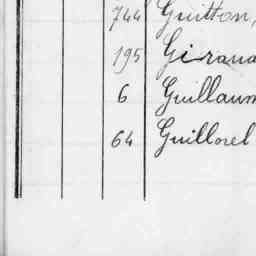 744 Guitton,
195 Giraud
6 Guillaum
64 Guillorel